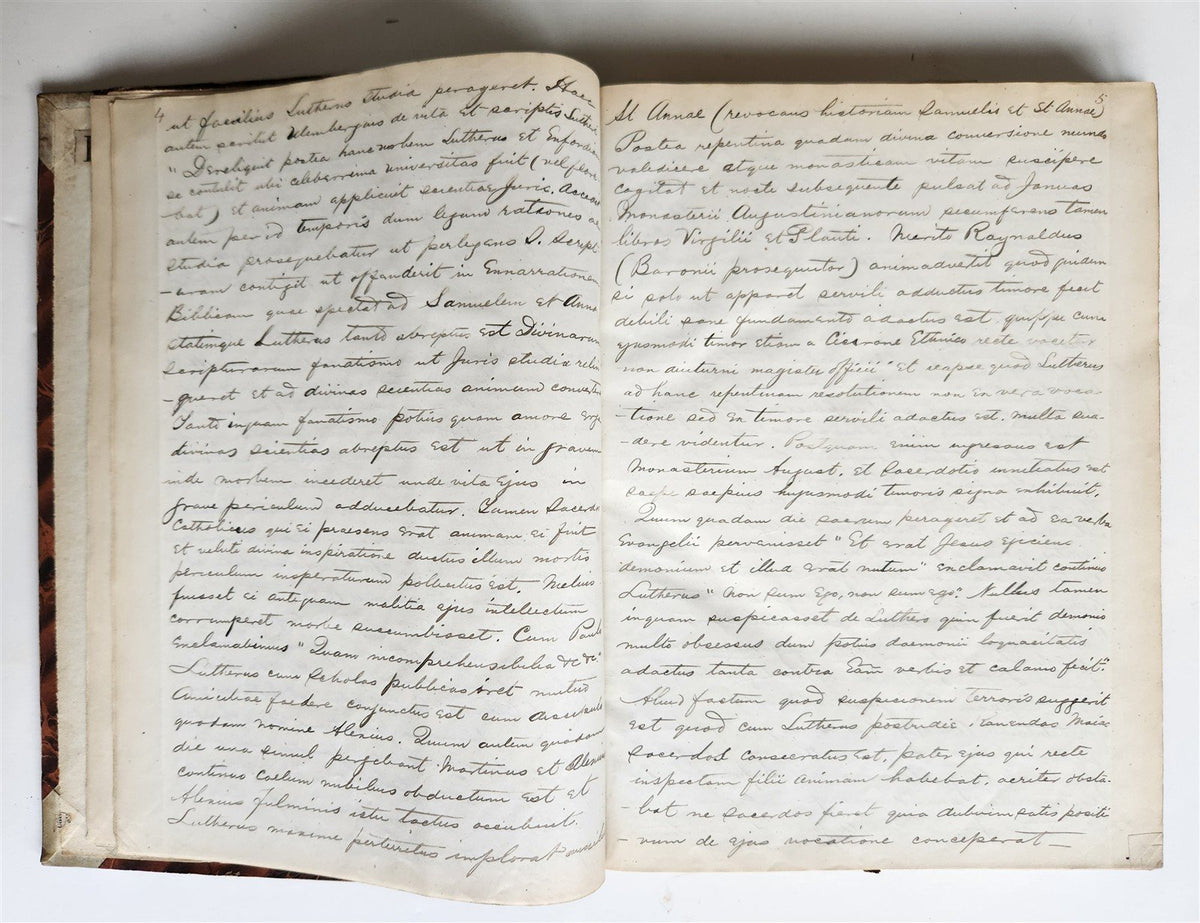 4
ut facilius Lutherus studia perageret. Haec
autem scribit Ulembergius de vita et scriptis Lutheri
"Dereliquit postea hanc urbem Lutherus et Enfordiam
se contulit ubi celeberrima universitas fuit (vel flore
bat) et animam applicuit scientiae Juris.
autem per id temporis dum legum rationes ac
studia prosequebatur ut perlegens S. Script
-uram contigit ut offenderit in Ennarrationem
Biblicam quae spectat ad Samuelem et Anna
statimque Lutherus tanto abreptus est Divinarum
scripturarum fanatismo ut Juris studia relin
-queret et ad divinas scientias animum converteret
Tanto inquam fanatismo potius quam amore erga
divinas scientias abreptus est ut in gravem
inde morbem incederet unde vita ejus in
grave periculum adducebatur. Tamen Sacerdos
Catholicus qui ei praesens erat animam ei fuit
et veluti divina inspiratione ductus illum mortis
periculum insperaturum pollicitus est. Melius
fuisset ei antequam malitia ejus intellectum
corrumperet morbo succumbisset. Cum Paulo
exclamabimus "Quam incomprehensibilia &c &c"
Lutherus cum scholas publicas iret mutuo
amicitiae foedere conjunctus est cum
quodam nomine Alexius. Quum autem quodam
die una simul pergebant Martinus et Alexius
continuo caelum nubibus obductum est et
Alexius fulminis ictu tactus occubuit.
Lutherus maxime perterritus implorat
5
St Annae (revocans historiam Samuelis et St Annae)
Postea repentina quadam divina conversione mundo
valedicere atque monasticam vitam suscipere
cogitat et nocte subsequente pulsat ad Januas
Monasterii Augustinianorum secumferens tamen
libros Virgilii et Plauti. Merito Raynaldus
(Baronii prosequutor) animadvertit quod quidem
si solo ut apparet servili adductus timore fecit
debili sane fundamento adactus est quippe cum
ejusmodi timor etiam a Cicerone Ethnico recte vocetur
non diuturni magister officii" Et reapse quod Lutherus
ad hanc repentinam resolutionem non ex vera voca
-tione sed ex timore servili adactus est. multa sua
-dere videntur. Postquam enim ingressus est
Monasterium August. et Sacerdotio innitiatus est
saepe saepius hujusmodi timoris signa exhibuit.
Quum quadam die sacrum perageret et ad ea verba
Evangelii pervenisset "Et erat Jesus ejiciens
demonium et illud erat mutum" enclamavit continuo
Lutherus "Non sum Ego, non sum ego". Nullus tamen
inquam suspicasset de Luthero quin fuerit demonio
multo obsessus dum potius daemonii loquacitatis
adactus tanta contra Eam verbis et calamo fecit."
Aliud factum quod suspicionem terroris suggerit
est quod cum Lutherus postridie Kalendas Maii
sacerdos consecratus est, pater ejus qui recte
inspectam filii animam habebat, acriter obsta-
-bat ne sacerdos fieret quia dubium satis positi
-vum de ejus vocatione conceperat—